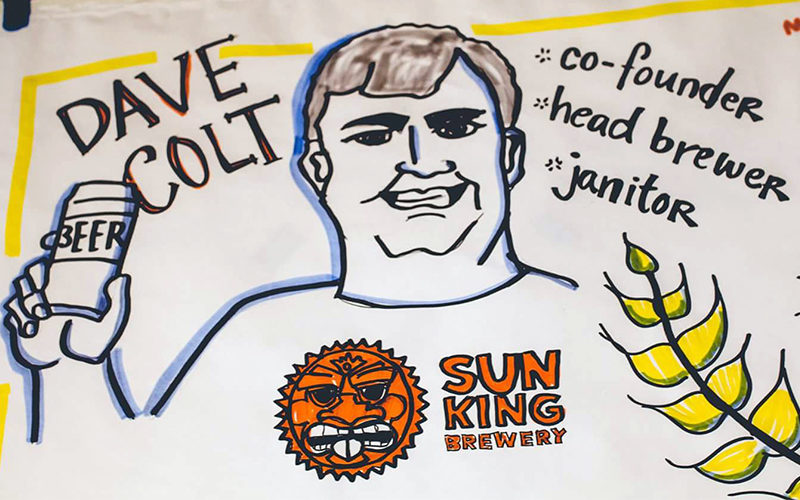 DAVE
COLT
BEER
co-founder
head brewer
janitor
SUN
KING
BREWERY